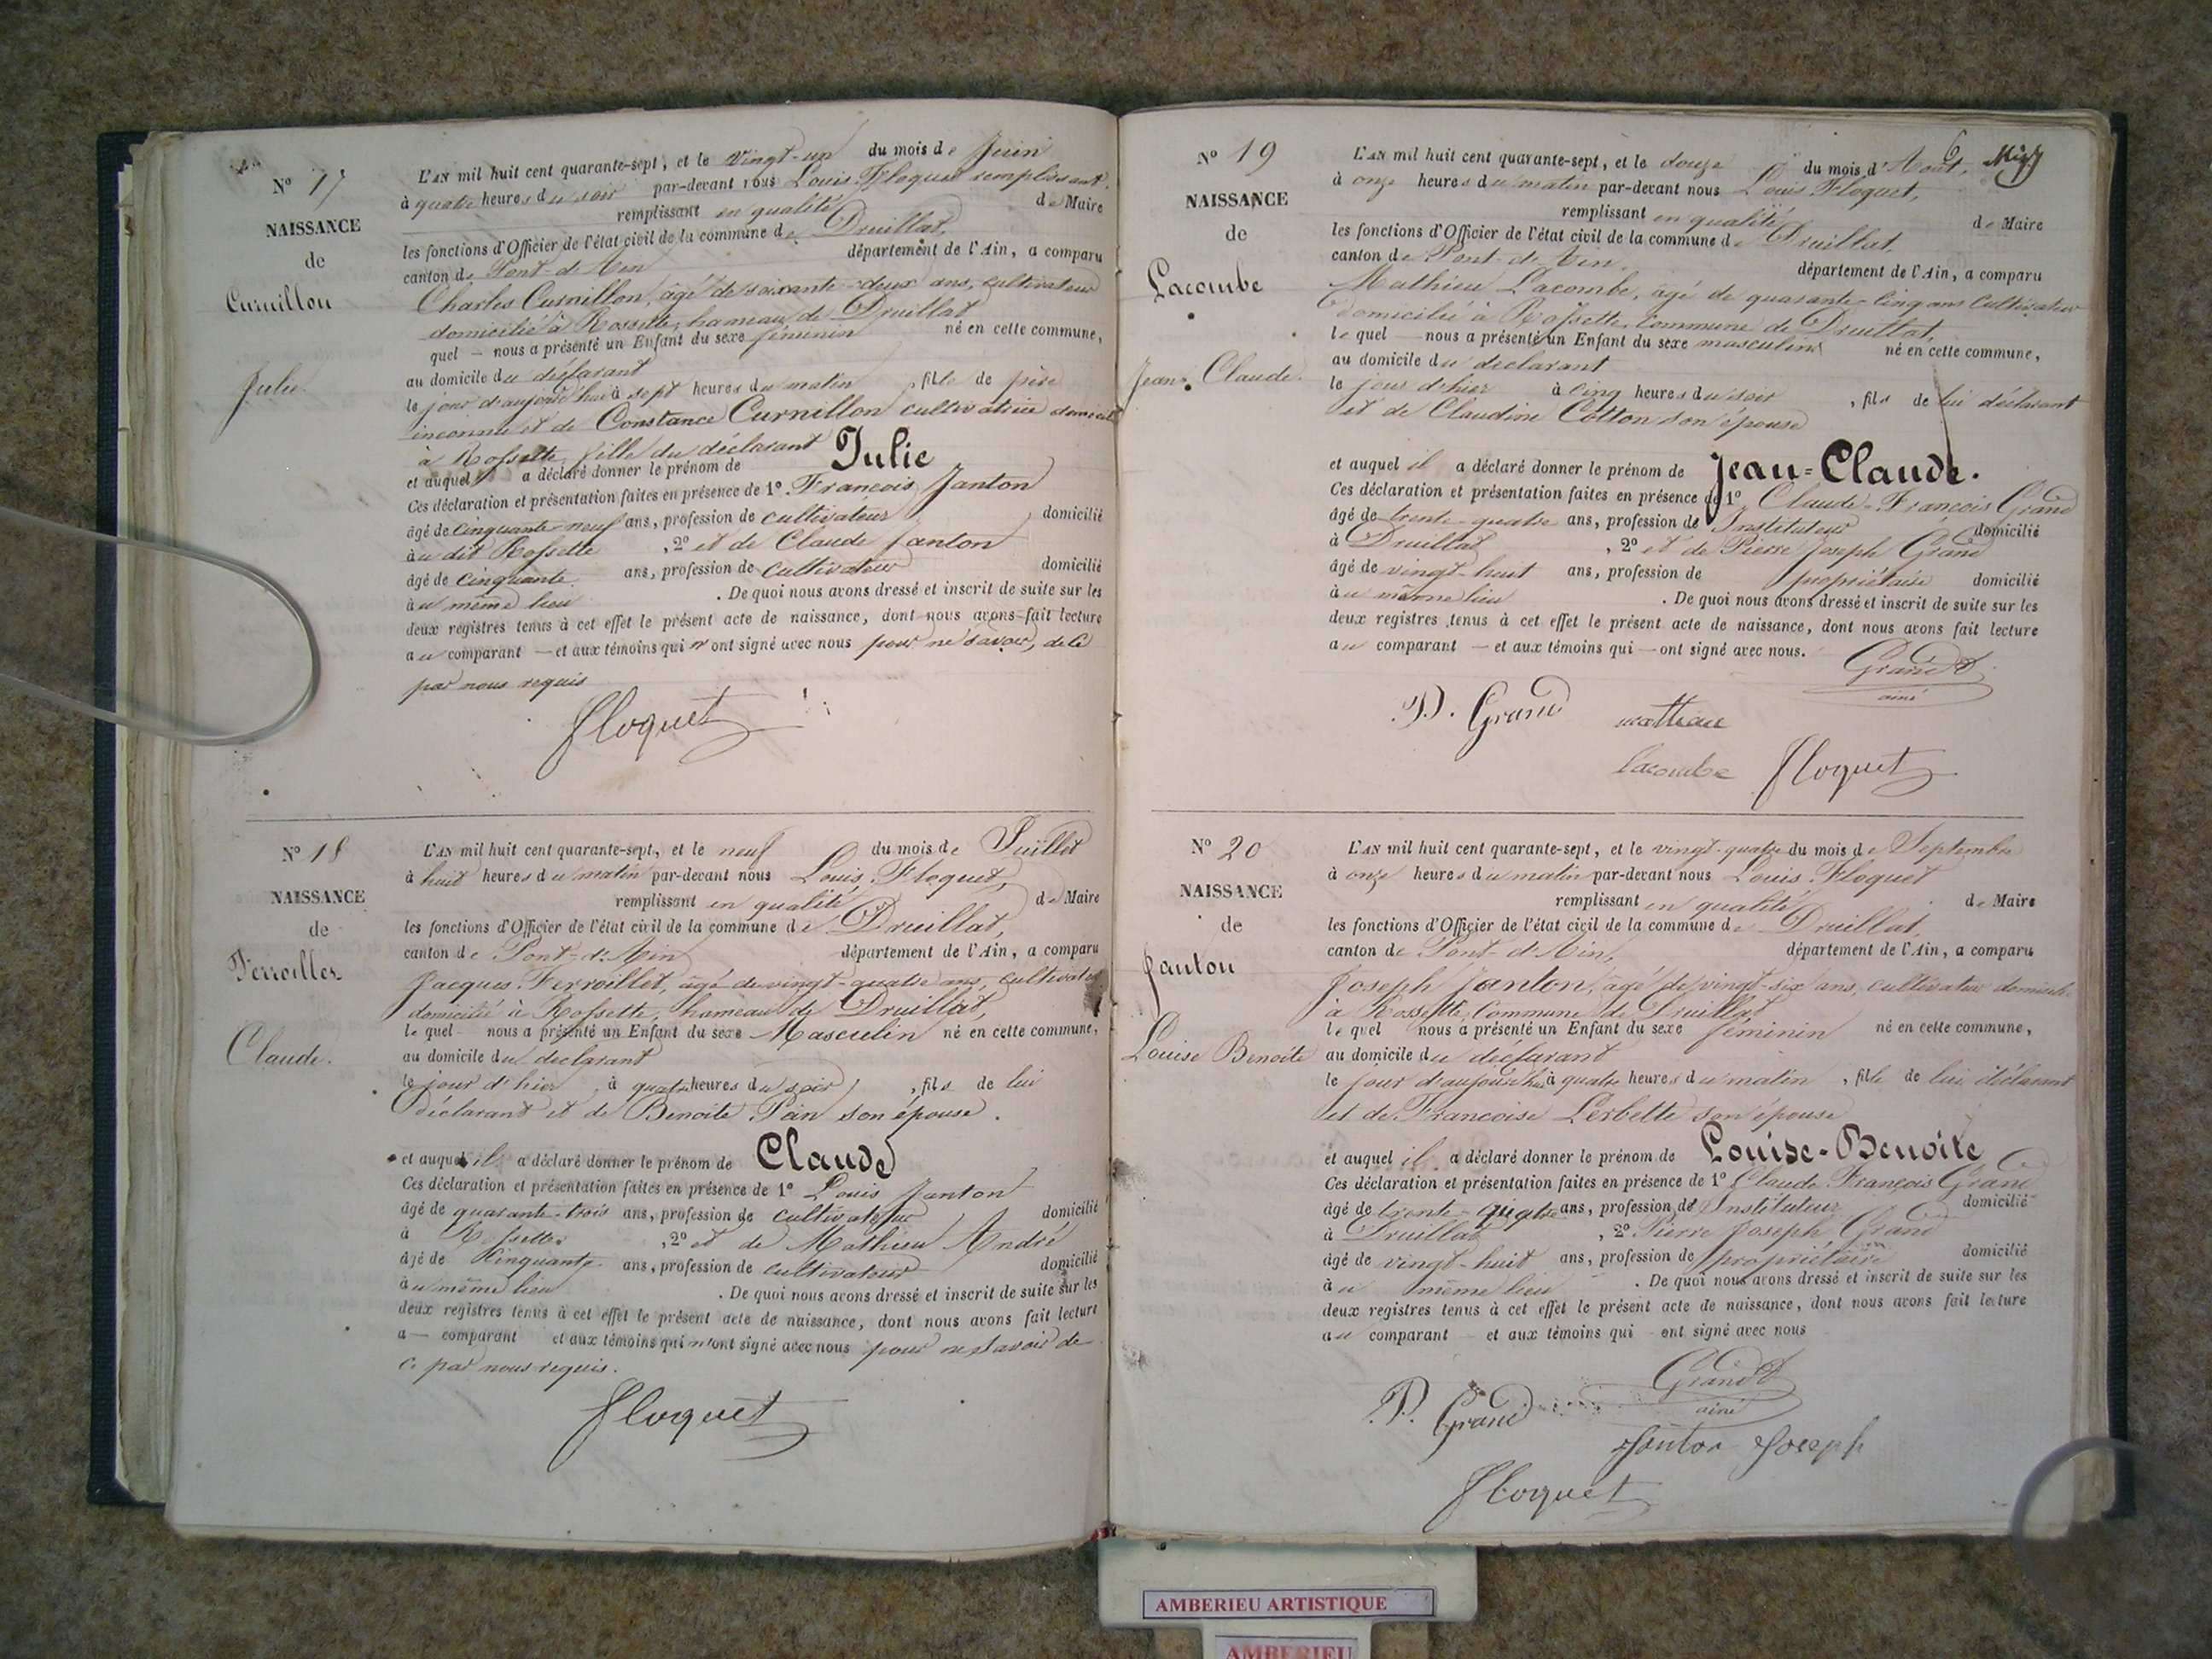 Nº 17
NAISSANCE
de
Curnillon
Julie
L'AN mil huit cent quarante-sept, et le Vingt-un du mois de Juin
à quatre heures du soir par-devant nous Louis Floquet remplissant
remplissant en qualité de Maire
les fonctions d'Officier de l'état civil de la commune de Druillat,
canton de Pont-d'Ain département de l'Ain, a comparu
Charles Curnillon, âgé de soixante-deux ans, cultivateur
domicilié à Rossette, hameau de Druillat
quel — nous a présenté un Enfant du sexe féminin né en cette commune,
au domicile du déclarant
le jour d'aujourd'hui à sept heures du matin, fille de père
inconnu et de Constance Curnillon cultivatrice
à Rossette, fille du déclarant
et auquel a déclaré donner le prénom de Julie
Ces déclaration et présentation faites en présence de 1º François Janton
âgé de cinquante-neuf ans, profession de cultivateur, domicilié
au dit Rossette, 2º et de Claude Janton
âgé de cinquante ans, profession de cultivateur domicilié
au même lieu. De quoi nous avons dressé et inscrit de suite sur les
deux registres tenus à cet effet le présent acte de naissance, dont nous avons fait lecture
au comparant — et aux témoins qui n'ont signé avec nous pour ne savoir, de ce
par nous requis
Floquet
Nº 18
NAISSANCE
de
Ferroillet
Claude.
L'AN mil huit cent quarante-sept, et le neuf du mois de Juillet
à huit heures du matin par-devant nous Louis Floquet,
remplissant en qualité de Maire
les fonctions d'Officier de l'état civil de la commune de Druillat,
canton de Pont-d'Ain département de l'Ain, a comparu
Jacques Ferroillet, âgé de vingt-quatre ans, cultivateur
domicilié à Rossette, hameau de Druillat,
le quel nous a présenté un Enfant du sexe Masculin né en cette commune,
au domicile du déclarant
le jour d'hier à quatre heures du soir, fils de lui
Déclarant et de Benoite Pain son épouse.
et auquel il a déclaré donner le prénom de Claude
Ces déclaration et présentation faites en présence de 1º Louis Janton
âgé de quarante-trois ans, profession de cultivateur domicilié
à Rossette, 2º et de Mathieu André
âgé de cinquante ans, profession de cultivateur domicilié
au même lieu. De quoi nous avons dressé et inscrit de suite sur les
deux registres tenus à cet effet le présent acte de naissance, dont nous avons fait lecture
a — comparant et aux témoins qui n'ont signé avec nous pour ne savoir de
ce par nous requis.
Floquet
6
Nº 19
NAISSANCE
de
Lacombe
Jean-Claude.
L'AN mil huit cent quarante-sept, et le douze du mois d'Août,
à onze heures du matin par-devant nous Louis Floquet,
remplissant en qualité de Maire
les fonctions d'Officier de l'état civil de la commune de Druillat,
canton de Pont-d'Ain, département de l'Ain, a comparu
Mathieu Lacombe, âgé de quarante-cinq ans Cultivateur
domicilié à Rossette, Commune de Druillat,
le quel — nous a présenté un Enfant du sexe masculin né en cette commune,
au domicile du déclarant
le jour d'hier à cinq heures du soir, fils de lui déclarant
et de Claudine Cotton son épouse
et auquel il a déclaré donner le prénom de Jean-Claude.
Ces déclaration et présentation faites en présence de 1º Claude-François Grand
âgé de trente-quatre ans, profession de Instituteur domicilié
à Druillat, 2º et de Pierre Joseph Grand
âgé de vingt-huit ans, profession de propriétaire domicilié
au même lieu. De quoi nous avons dressé et inscrit de suite sur les
deux registres tenus à cet effet le présent acte de naissance, dont nous avons fait lecture
au comparant — et aux témoins qui — ont signé avec nous.
Grand
ainé
P. Grand mathieu
lacombe Floquet
Nº 20
NAISSANCE
de
Janton
Louise Benoite
L'AN mil huit cent quarante-sept, et le vingt-quatre du mois de Septembre
à onze heures du matin par-devant nous Louis Floquet
remplissant en qualité de Maire
les fonctions d'Officier de l'état civil de la commune de Druillat,
canton de Pont-d'Ain, département de l'Ain, a comparu
Joseph Janton, âgé de vingt-six ans, cultivateur domicilié
à Rossette, Commune de Druillat
le quel nous a présenté un Enfant du sexe féminin né en cette commune,
au domicile du déclarant
le jour d'aujourd'hui à quatre heures du matin, fille de lui déclarant
et de Francoise Lerbette son épouse
et auquel il a déclaré donner le prénom de Louise-Benoite
Ces déclaration et présentation faites en présence de 1º Claude François Grand
âgé de trente-quatre ans, profession de Instituteur domicilié
à Druillat, 2º Pierre Joseph Grand
âgé de vingt-huit ans, profession de propriétaire domicilié
au même lieu. De quoi nous avons dressé et inscrit de suite sur les
deux registres tenus à cet effet le présent acte de naissance, dont nous avons fait lecture
au comparant — et aux témoins qui ont signé avec nous
Grand
ainé
P. Grand
Janton Joseph
Floquet
AMBERIEU ARTISTIQUE
AMBERIEU